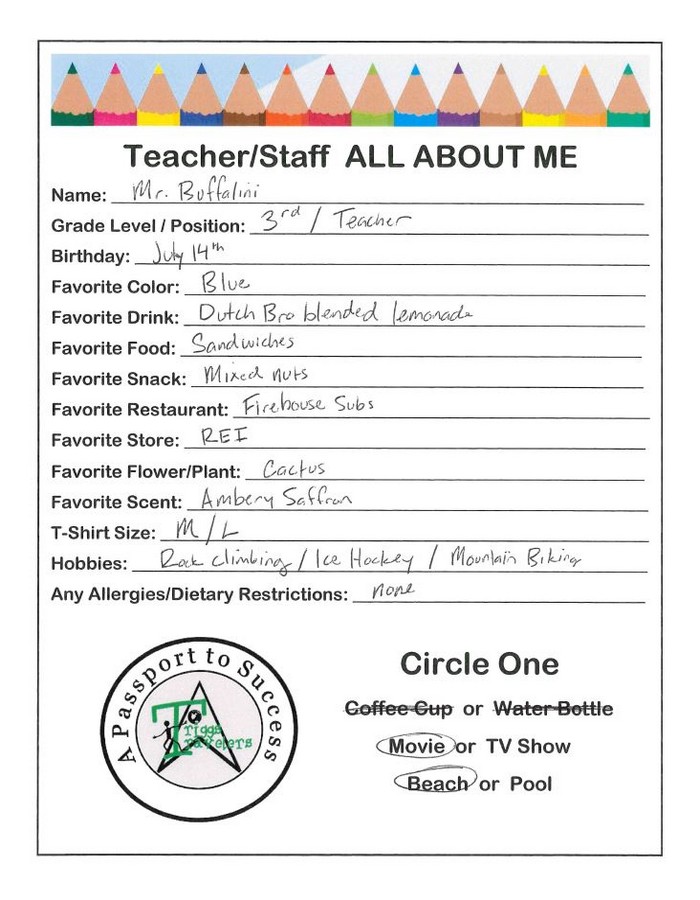 Teacher/Staff ALL ABOUT ME
Name: Mr. Buffalini
Grade Level / Position: 3rd / Teacher
Birthday: July 14th
Favorite Color: Blue
Favorite Drink: Dutch Bro blended lemonade
Favorite Food: Sandwiches
Favorite Snack: Mixed nuts
Favorite Restaurant: Firehouse Subs
Favorite Store: REI
Favorite Flower/Plant: Cactus
Favorite Scent: Ambery Saffron
T-Shirt Size: M/L
Hobbies: Rock climbing / Ice Hockey / Mountain Biking
Any Allergies/Dietary Restrictions: none
A Passport to Success
Triggs
Travelers
Circle One
Coffee Cup or Water Bottle
Movie or TV Show
Beach or Pool